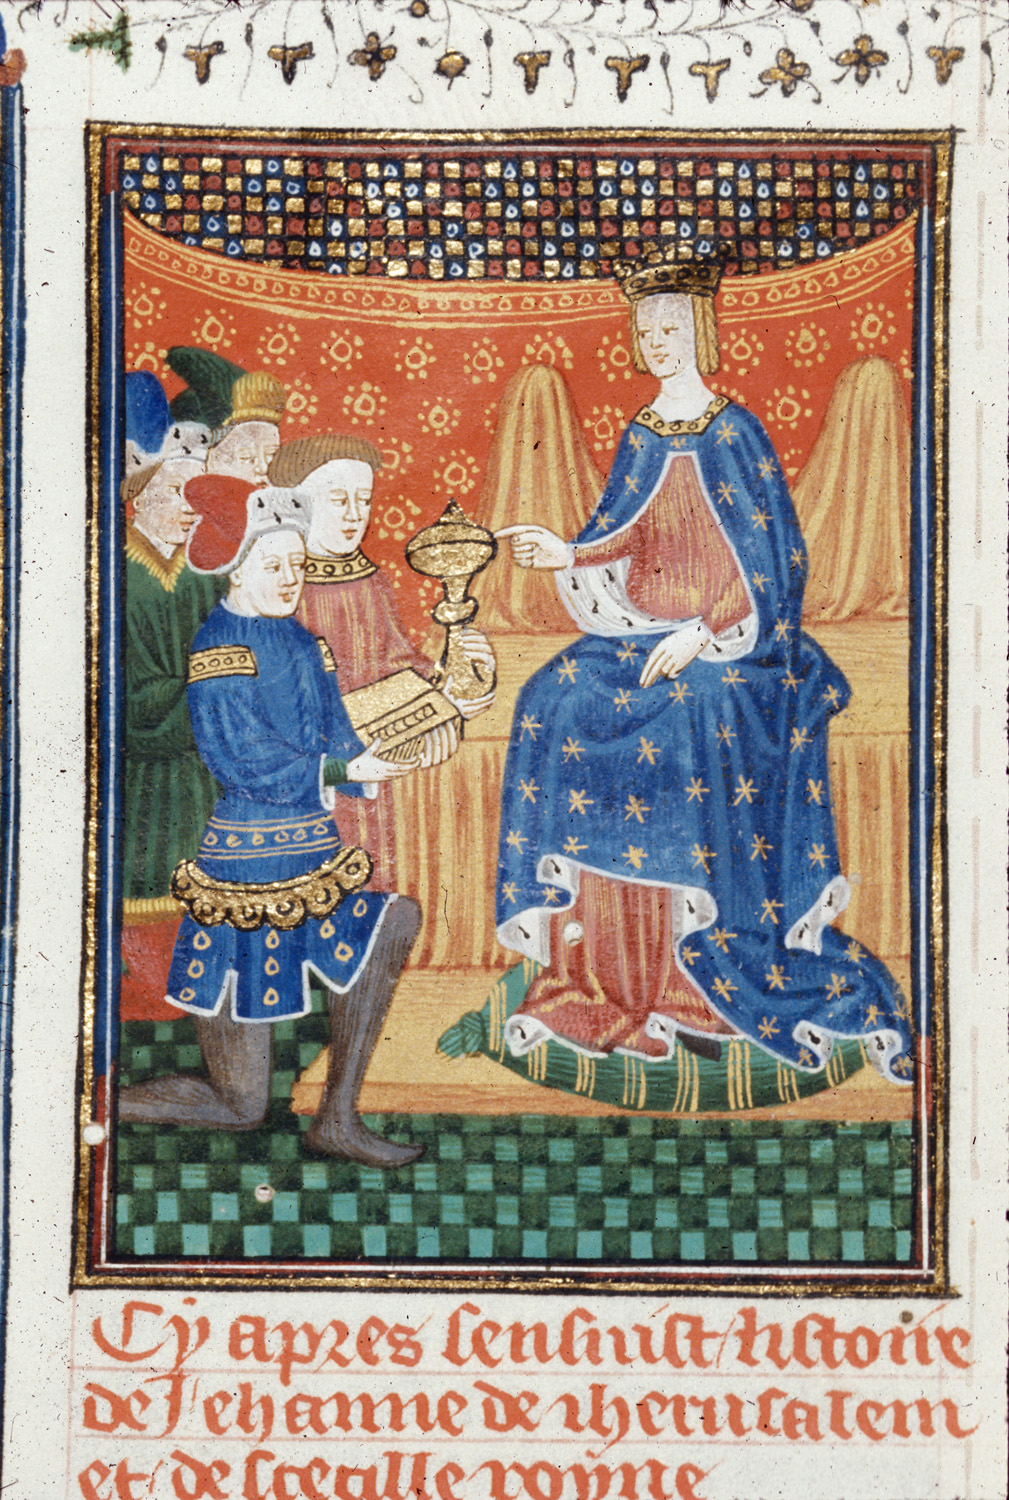 Cy apres sensuist listoire
de Jehanne de iherusalem
et de secille royne